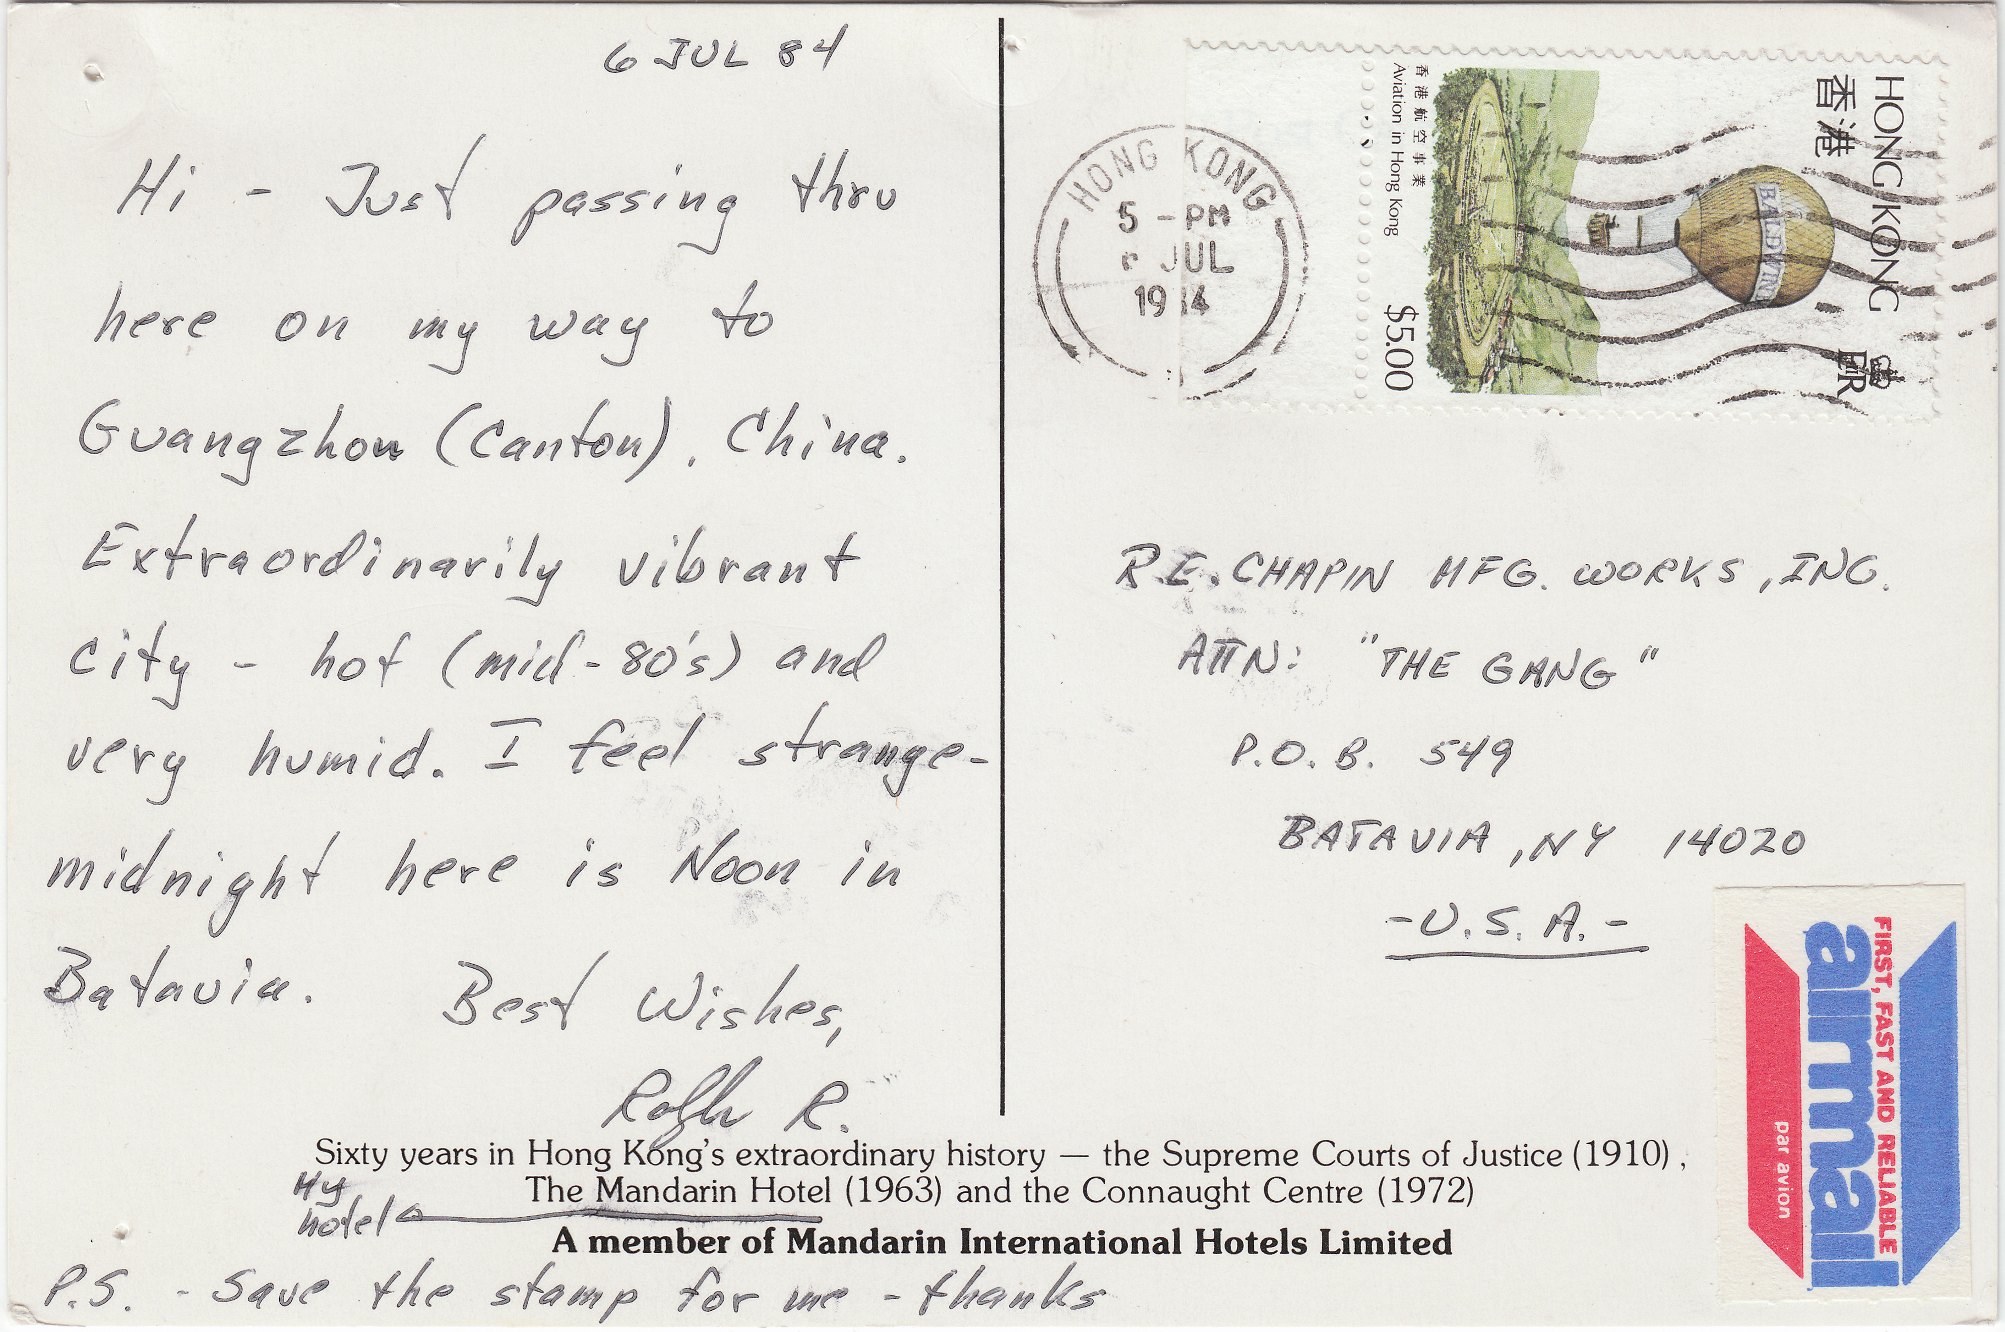 6 JUL 84
Hi - Just passing thru
here on my way to
Guangzhou (Canton), China.
Extraordinarily vibrant
city - hot (mid-80's) and
very humid. I feel strange-
midnight here is Noon in
Batavia.
Best Wishes,
R.
Sixty years in Hong Kong's extraordinary history — the Supreme Courts of Justice (1910),
The Mandarin Hotel (1963) and the Connaught Centre (1972)
My
hotel
A member of Mandarin International Hotels Limited
P.S. - Save the stamp for me - thanks
HONG KONG
5 - PM
JUL
19 4
HONG KONG
香港
EIIR
BALDWIN
香港航空事業
Aviation in Hong Kong
$5.00
R.E. CHAPIN MFG. WORKS, INC.
ATTN: "THE GANG"
P.O.B. 549
BATAVIA, NY 14020
-U.S.A.-
FIRST, FAST AND RELIABLE
airmail
par avion